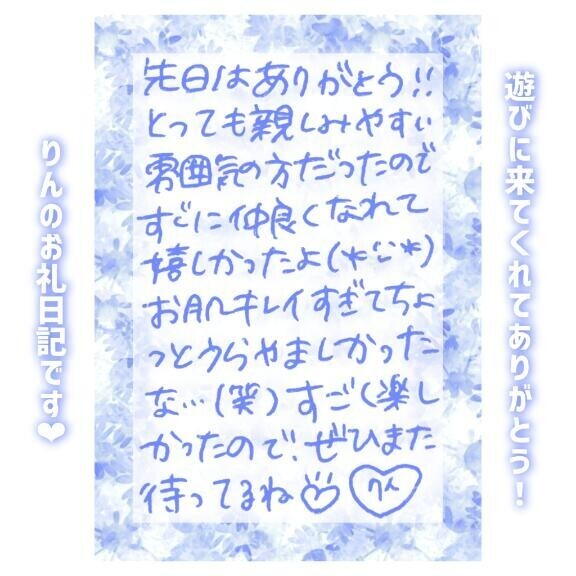 遊びに来てくれてありがとう!
先日はありがとう!!
とっても親しみやすい
雰囲気の方だったので
すぐに仲良くなれて
嬉しかったよ(*ˊ˘ˋ*)
お肌キレイすぎてちょ
っとうらやましかった
な…(笑)すごく楽し
かったので、ぜひまた
待ってるね♡
りん
りんのお礼日記です❤